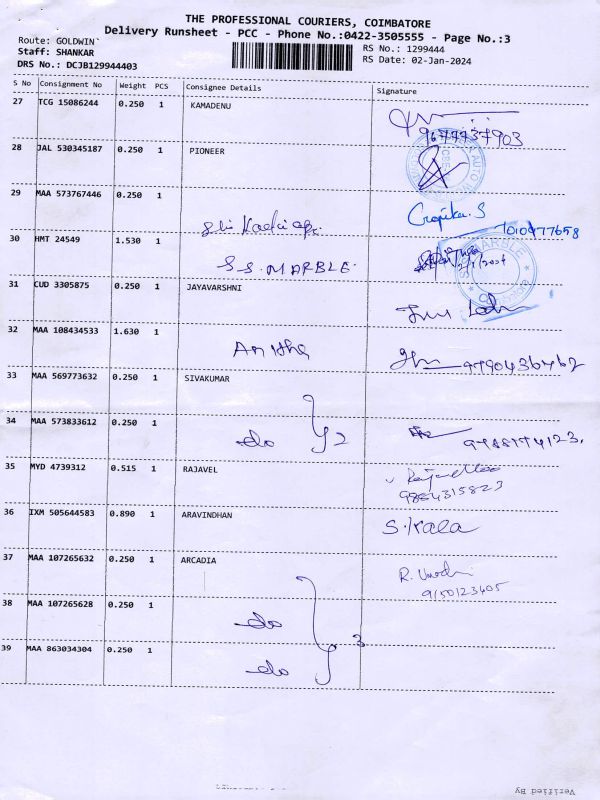 THE PROFESSIONAL COURIERS, COIMBATORE
Delivery Runsheet - PCC - Phone No.:0422-3505555 - Page No.:3
Route: GOLDWIN`
RS No.: 1299444
Staff: SHANKAR
RS Date: 02-Jan-2024
DRS No.: DCJB129944403
S No Consignment No Weight PCS Consignee Details Signature
27 TCG 15086244 0.250 1 KAMADENU
9677737903
28 JAL 530345187 0.250 1 PIONEER
29 MAA 573767446 0.250 1
Gopika.S
7010977658
30 HMT 24549 1.530 1 S.S.MARBLE
31 CUD 3305875 0.250 1 JAYAVARSHNI
32 MAA 108434533 1.630 1
9790436462
33 MAA 569773632 0.250 1 SIVAKUMAR
34 MAA 573833612 0.250 1 do 2
35 MYD 4739312 0.515 1 RAJAVEL
9864315823
36 IXM 505644583 0.890 1 ARAVINDHAN S.Kala
37 MAA 107265632 0.250 1 ARCADIA
9150123405
38 MAA 107265628 0.250 1 do
3
39 MAA 863034304 0.250 1 do
Verified By